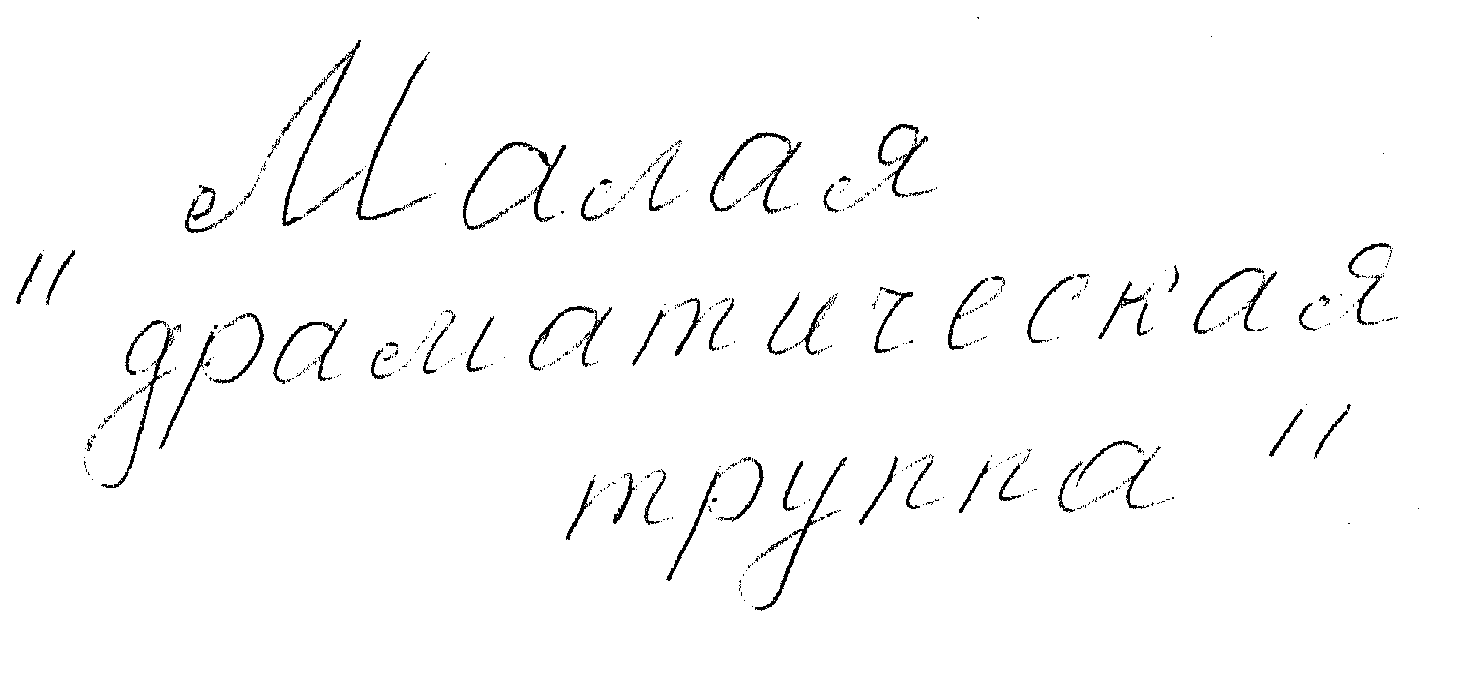 Малая
"драматическая
труппа"